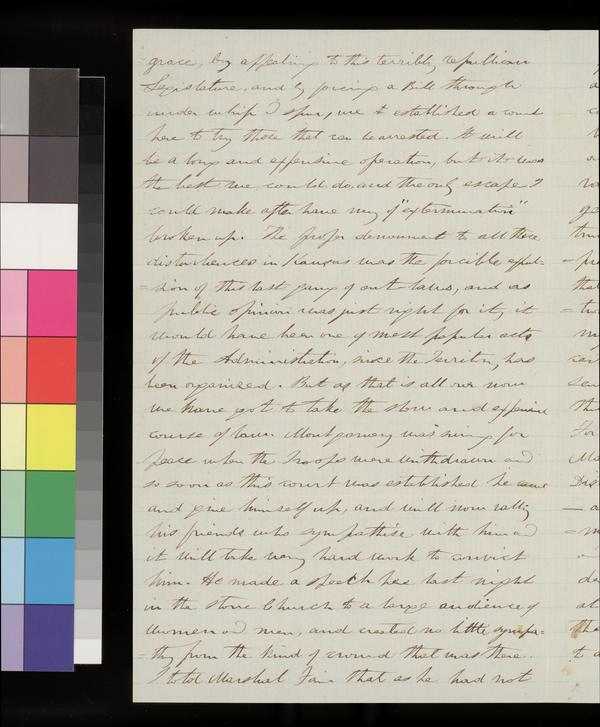 =grace, by appealing to this terribly republican
Legislature, and by forcing a Bill through
under whip & spur, we established a court
here to try those that can be arrested. It will
be a long and expensive operation, but it was
the best we could do, and the only escape I
could make after have my "extermination"
broken up. The proper denoument to all these
disturbances in Kansas was the forcible expul-
=sion of this last gang of out-laws, and as
public opinion was just right for it, it
would have been one of most popular acts
of the Administration, since the Territory has
been organized. But as that is all over now
we have got to take the slow and expensive
course of law. Montgomery was suing for
peace when the troops were withdrawn and
so soon as this court was established he came
and give himself up, and will now rally
his friends who sympathise with him and
it will take very hard work to convict
him. He made a speech here last night
in the stone Church to a large audience of
women and men, and created no little sympa-
=thy from the kind of crowd that was there.
I told Marshal Fain that as he had not